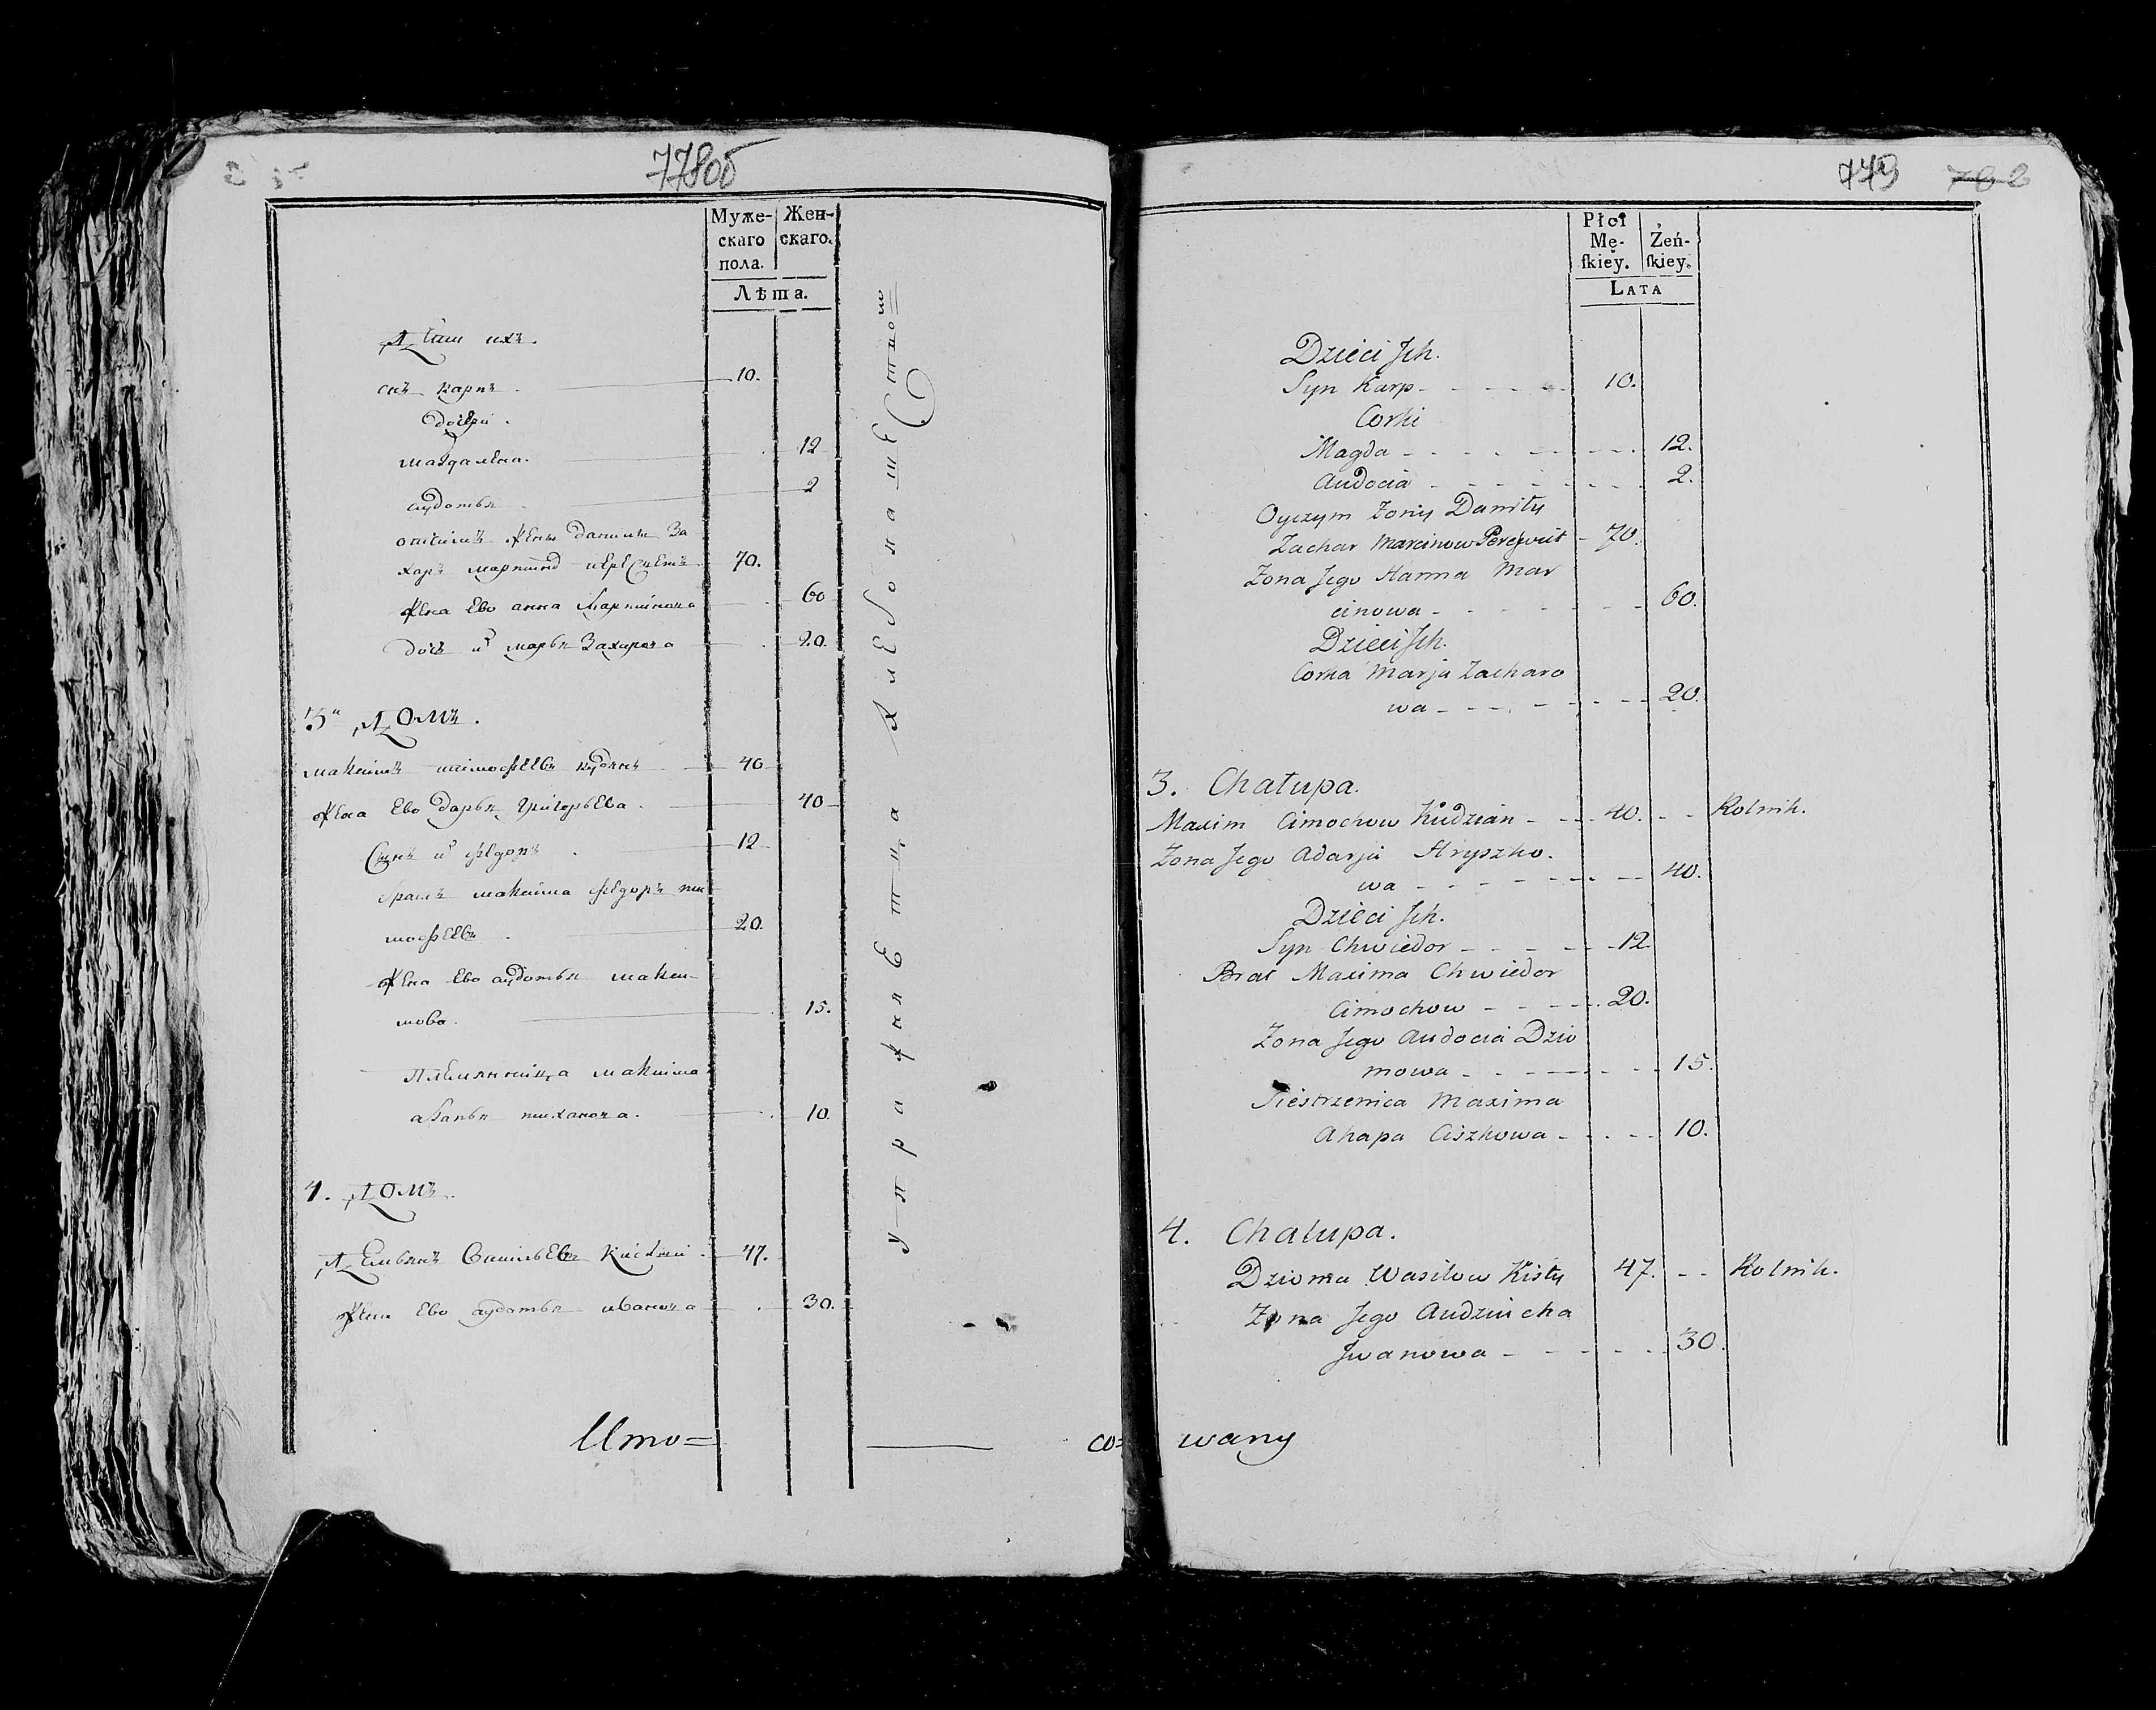 778об
Муже-
скаго
пола.
Жен-
скаго.
Лѣта.
Дѣти ихъ.
снъ карпъ. 10.
дочери.
магдалена. 12
аудотья. 2
отчимъ жены данилы За
харъ мартинъ 70.
жена Ево анна Мартинова 60
дочь их марья Захарова 20.
3 Домъ.
максимъ тимофеевъ кудянъ 40
жена Ево дарья григорьева. 40
Сынъ их федоръ. 12
братъ максима федоръ ти
мофеевъ. 20.
жена Ево аудотья
мова. 15.
племянница максима
агапья тиханова. 10.
4. Домъ.
Демьянъ Васильевъ Киселъ. 47.
жена Ево аудотья иванова 30.
Итто=
со=
779 782
Płci
Mę-
ſkiey.
Żeń-
ſkiey.
LATA
Dzieci Jch.
Syn Karp 10.
Corki
Magda 12.
Audocia 2.
Oyczym Zony Daniły
Zachar Marcinow 70.
Zona Jego Hanna Mar
cinowa 60.
Dzieci Jch.
Corka Marja Zacharo
wa 20.
3. Chałupa.
Maxim Cimochow Kudzian 40. Rolnik.
Zona Jego Adarja Hryszko.
wa 40.
Dzieci Jch.
Syn Chwiedor 12
Brat Maxima Chwiedor
Cimochow 20.
Zona Jego Audocia Dzio
mowa 15.
Siestrzenica Maxima
Ahapa Ciszkowa 10.
4. Chalupa.
Dzioma Wasilow Kisły 47. Rolnik.
Zona Jego Audziucha
Jwanowa 30.
wany